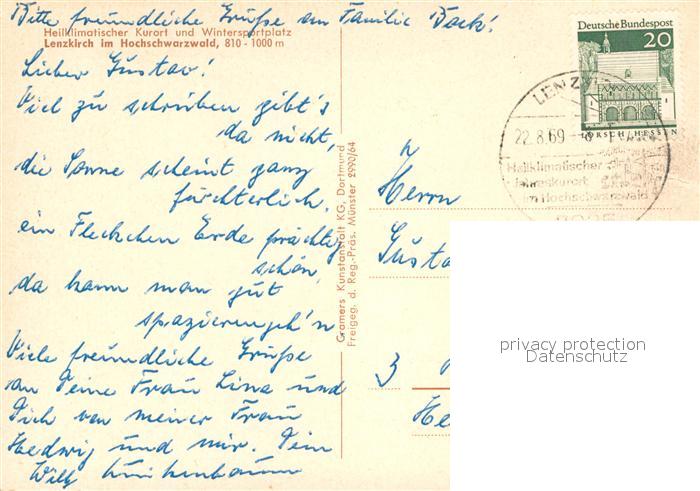 Bitte freundliche Grüße an Familie Bock!
Heilklimatischer Kurort und Wintersportplatz
Lenzkirch im Hochschwarzwald, 810 - 1000 m
Lieber Gustav!
Viel zu schreiben gibt's
da nicht,
die Sonne scheint ganz
fürchterlich,
ein Fleckchen Erde prächtig
schön,
da kann man gut
spazierengeh'n
Viele freundliche Grüße
an Deine Frau Lina und
Dich von meiner Frau
Hedwig und mir. Dein
Willy
Gramers Kunstanstalt KG, Dortmund
Freigeg. d. Reg.-Präs. Münster 2990/64
Deutsche Bundespost
20
LORSCH/HESSEN
22.8.69
Heilklimatischer
Jahreskurort
im Hochschwarzwald
Herrn
Gusta
3
He
privacy protection
Datenschutz